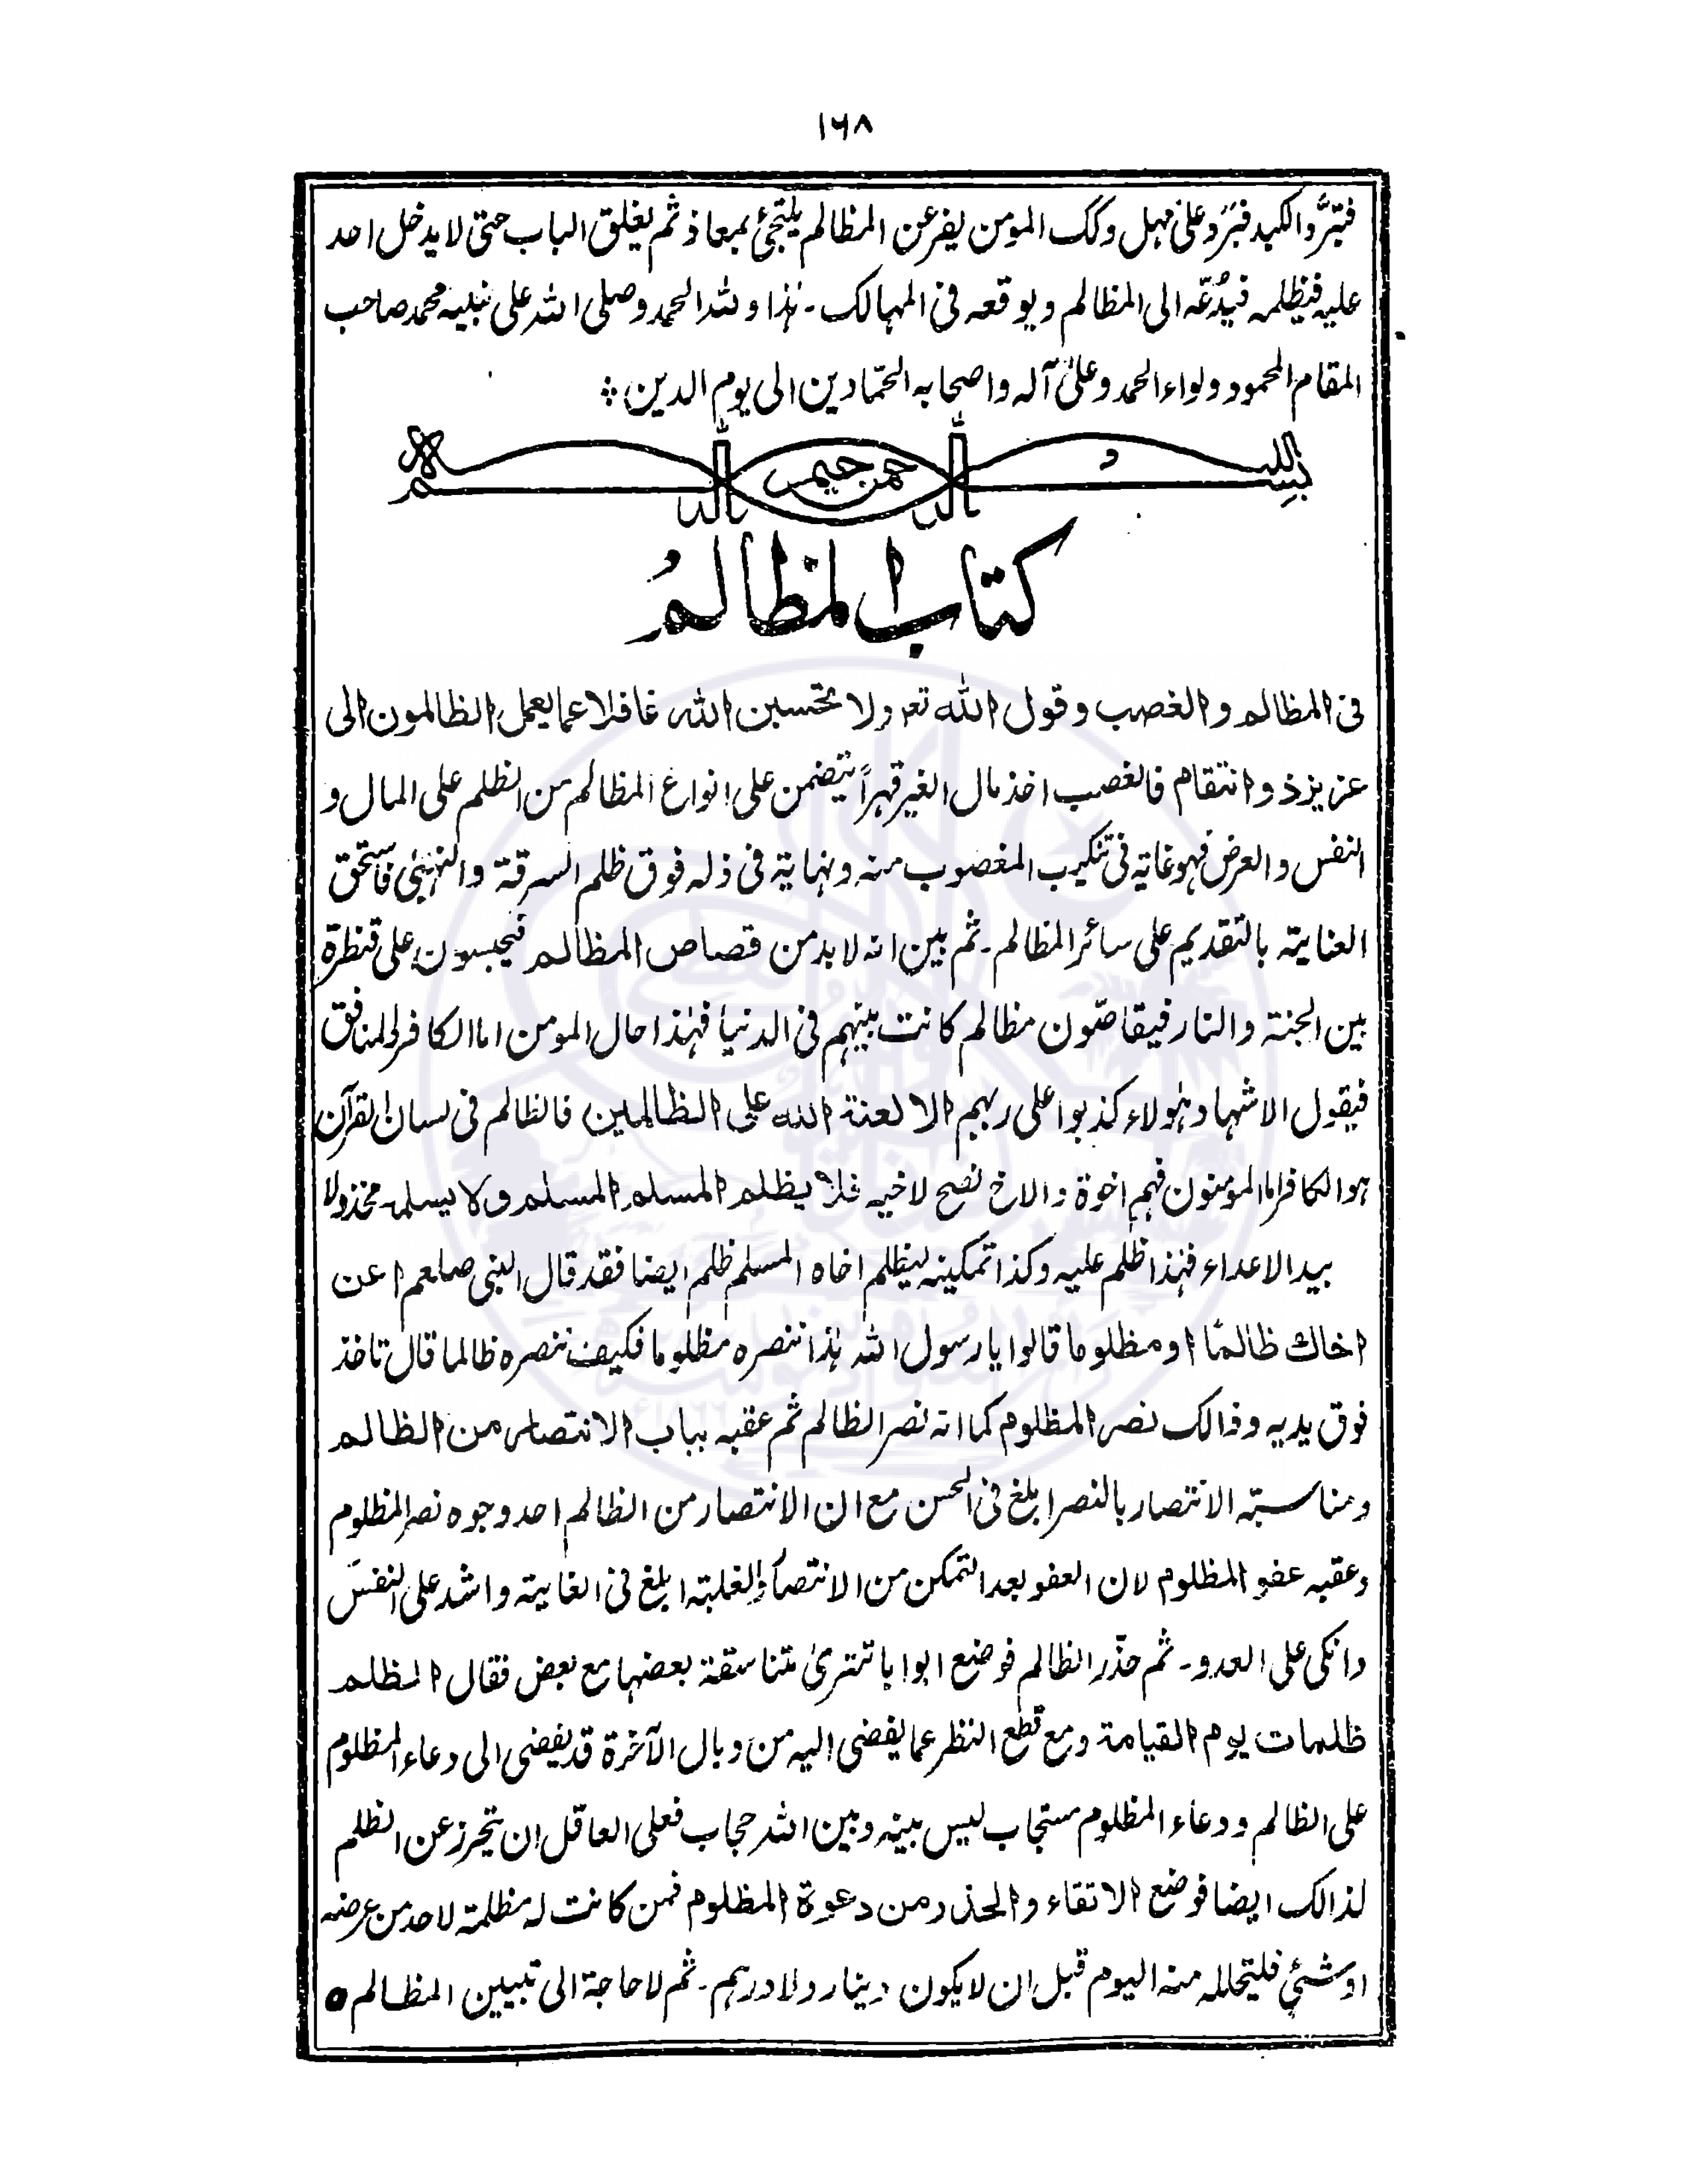 ۱۶۸
فتبرُّد الكبد فتبرَد علىٰ مهل وكك المومن يفر عن المظالم يلتجئ بمعاذ ثم يغلق الباب حتى لا يدخل احد
عليه فيظلمه فيدُعّه الى المظالم ويوقعه فى المهالك ۔ ہٰذا وللّٰه الحمد وصلى اللّٰه على نبيه محمد صاحب
المقام المحمود ولواء الحمد وعلىٰ آله واصحابه الحمّادين الى يوم الدين ؞
بسم الله الرحمن الرحيم
كتاب المظالمُ
فى المظالم والغصب وقول الله تعـ ولا تحسبن الله غافلا عما يعمل الظالمون الى
عزيز ذو انتقام فالغصب اخذ مال الغير قهراً يتضمن على انواع المظالم من الظلم على المال و
النفس والعرض فهو غاية فى تنكيب المغصوب منه ونهاية فى ذله فوق ظلم السرقة والنهبىٰ فاستحق
العناية بالتقديم على سائر المظالم ۔ ثم بين انه لابد من قصاص المظالم فيحبسون على قنطرة
بين الجنة والنار فيقاصّون مظالم كانت بينهم فى الدنيا فهٰذا حال المومن اما الكافر والمنافق
فيقول الاشهاد هٰولاء كذبوا على ربهم الا لعنة الله على الظالمين فالظالم فى لسان القرآن
هو الكافر اما المؤمنون فهم اخوة والاخ نصح لاخيه فلا يظلم المسلم المسلم ولا يسلمه مخذولا
بيد الاعداء فهٰذا ظلم عليه وكذا تمكينه ليظلم اخاه المسلم ظلم ايضا فقد قال النبى صلعم اعن
اخاك ظالمًا او مظلوما قالوا يا رسول اللّٰه ہٰذا ننصره مظلوما فكيف ننصره ظالما قال تاخذ
فوق يديه وذالك نصر المظلوم كما انه نصر الظالم ثم عقبه بباب الانتصار من الظالم
ومناسبة الانتصار بالنصر ابلغ فى الحسن مع ان الانتصار من الظالم احد وجوه نصر المظلوم
وعقبه عفو المظلوم لان العفو بعد التمكن من الانتصار والغلبة ابلغ فى الغاية واشد على النفس
وانكى على العدو۔ ثم حذّر الظالم فوضع ابوابا تترىٰ متناسقة بعضها مع بعض فقال الظلم
ظلمات يوم القيامة ومع قطع النظر عما يفضى اليه من وبال الآخرة قد يفضى الى دعاء المظلوم
على الظالم ودعاء المظلوم مستجاب ليس بينه وبين اللّٰه حجاب فعلى العاقل ان يتحرز عن الظلم
لذالك ايضا فوضع الاتقاء والحذر من دعوة المظلوم فمن كانت له مظلمة لاحد من عرضه
او شئي فليتحلله منه اليوم قبل ان لا يكون دينار ولا درهم ۔ ثم لا حاجة الى تبيين المظالم ه